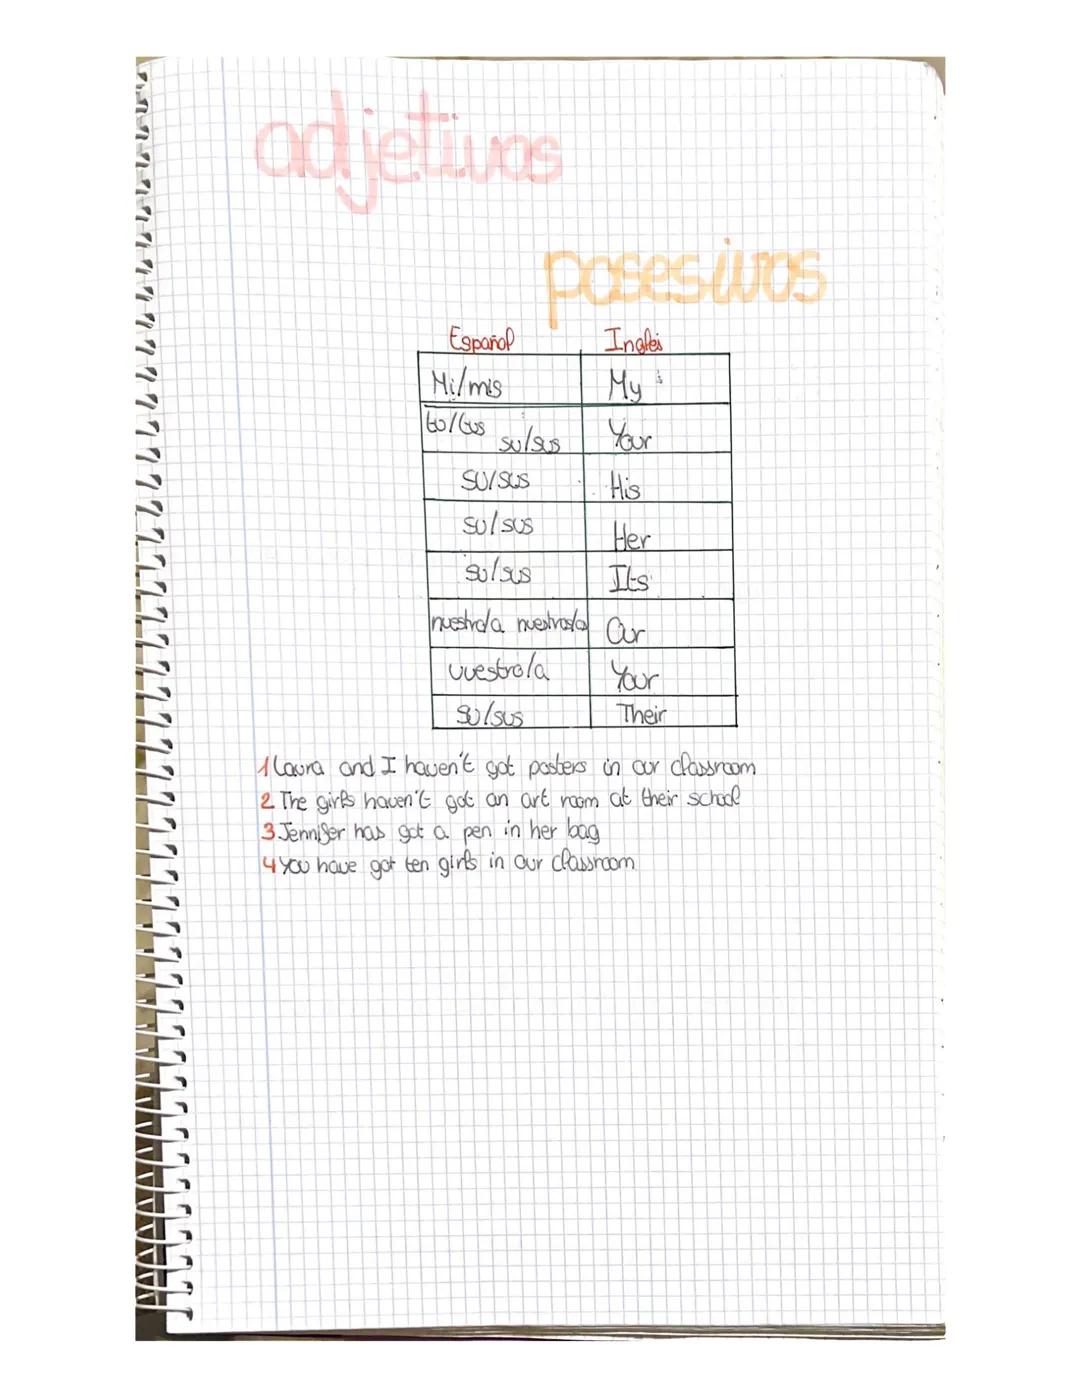 adjetivos
posesivos
Español Inglés
Mi/mis My
tu/tus su/sus Your
su/sus His
su/sus Her
su/sus Its
nuestro/a nuestros/a Our
vuestro/a Your
su/sus Their
1 Laura and I haven't got posters in our classroom
2 The girls haven't got an art room at their school
3 Jennifer has got a pen in her bag
4 you have got ten girls in our classroom